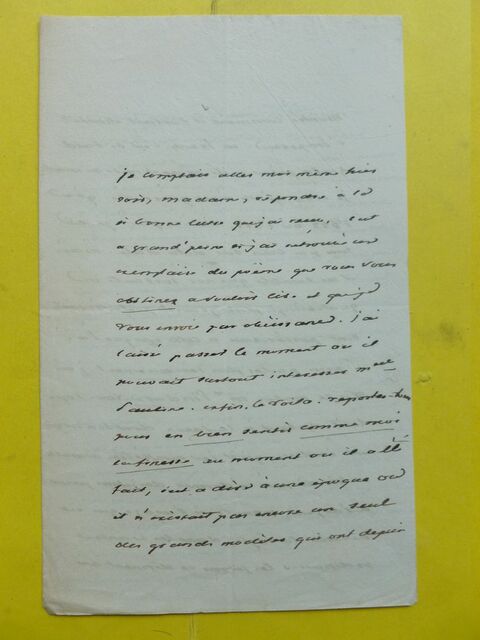 je comptais aller moi même hier
soir, madame, répondre à la
si bonne lettre que j'ai reçu, c'est
a grand'peine si j'ai retrouvé un
exemplaire du poëme que vous vous
obstinez a vouloir lire et que je
vous envoie par obéissance. j'ai
laissé passer le moment ou il
pouvait surtout interesser melle
Pauline. enfin, le voila. reportez-
vous en bien sentir comme moi
la finesse au moment ou il a été
fait, c'est a dire à une époque ou
il n'existait pas encore un seul
des grands modèles qui ont depuis